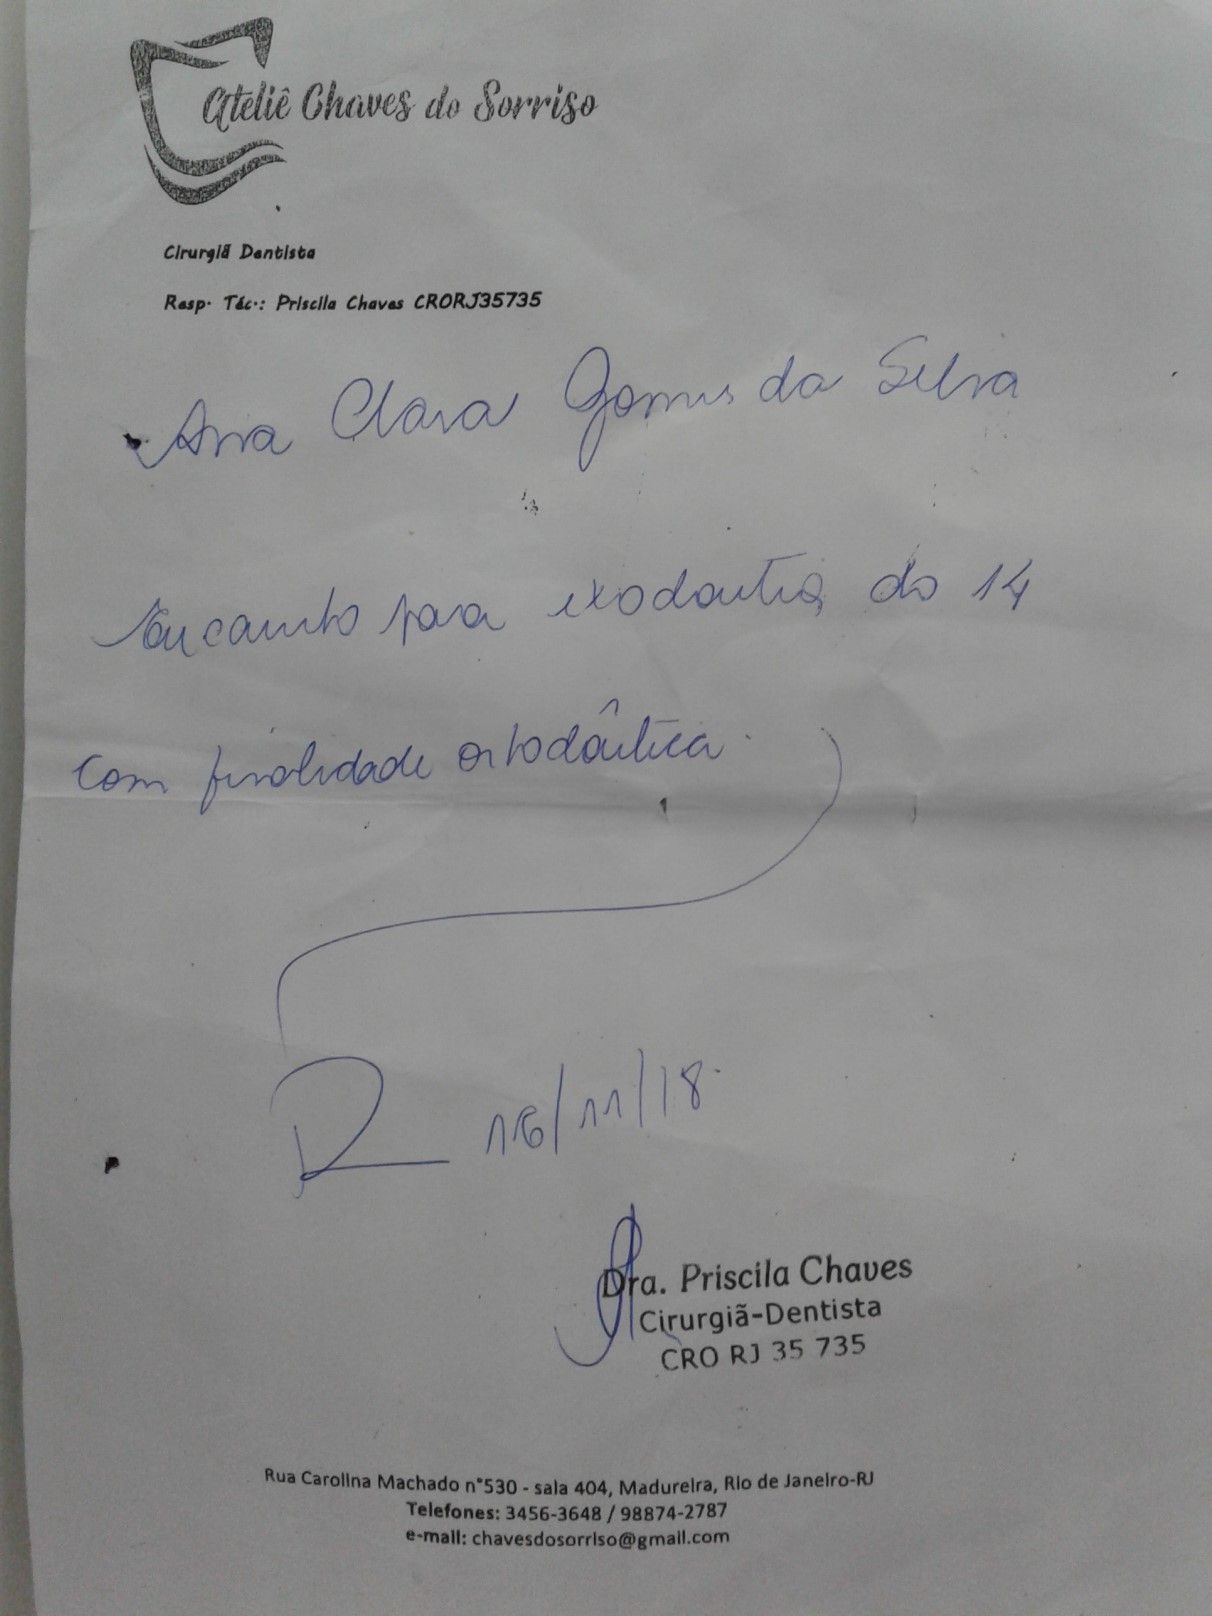 Ateliê Chaves do Sorriso
Cirurgiã Dentista
Resp. Téc.: Priscila Chaves CRORJ35735
Ana Clara Gomes da Silva
Encaminho para exodontia do 14
com finalidade ortodôntica.
16/11/18
Dra. Priscila Chaves
Cirurgiã-Dentista
CRO RJ 35 735
Rua Carolina Machado n°530 - sala 404, Madureira, Rio de Janeiro-RJ
Telefones: 3456-3648 / 98874-2787
e-mail: chavesdosorriso@gmail.com